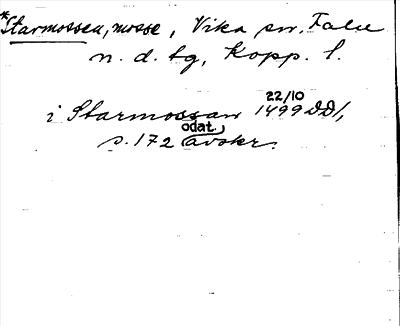 *Starmossen, mosse, Vika sn, Falu
n. d. tg, Kopp. l.
i Starmossan 22/10 1499 DD1,
s. 172 odat. avskr.